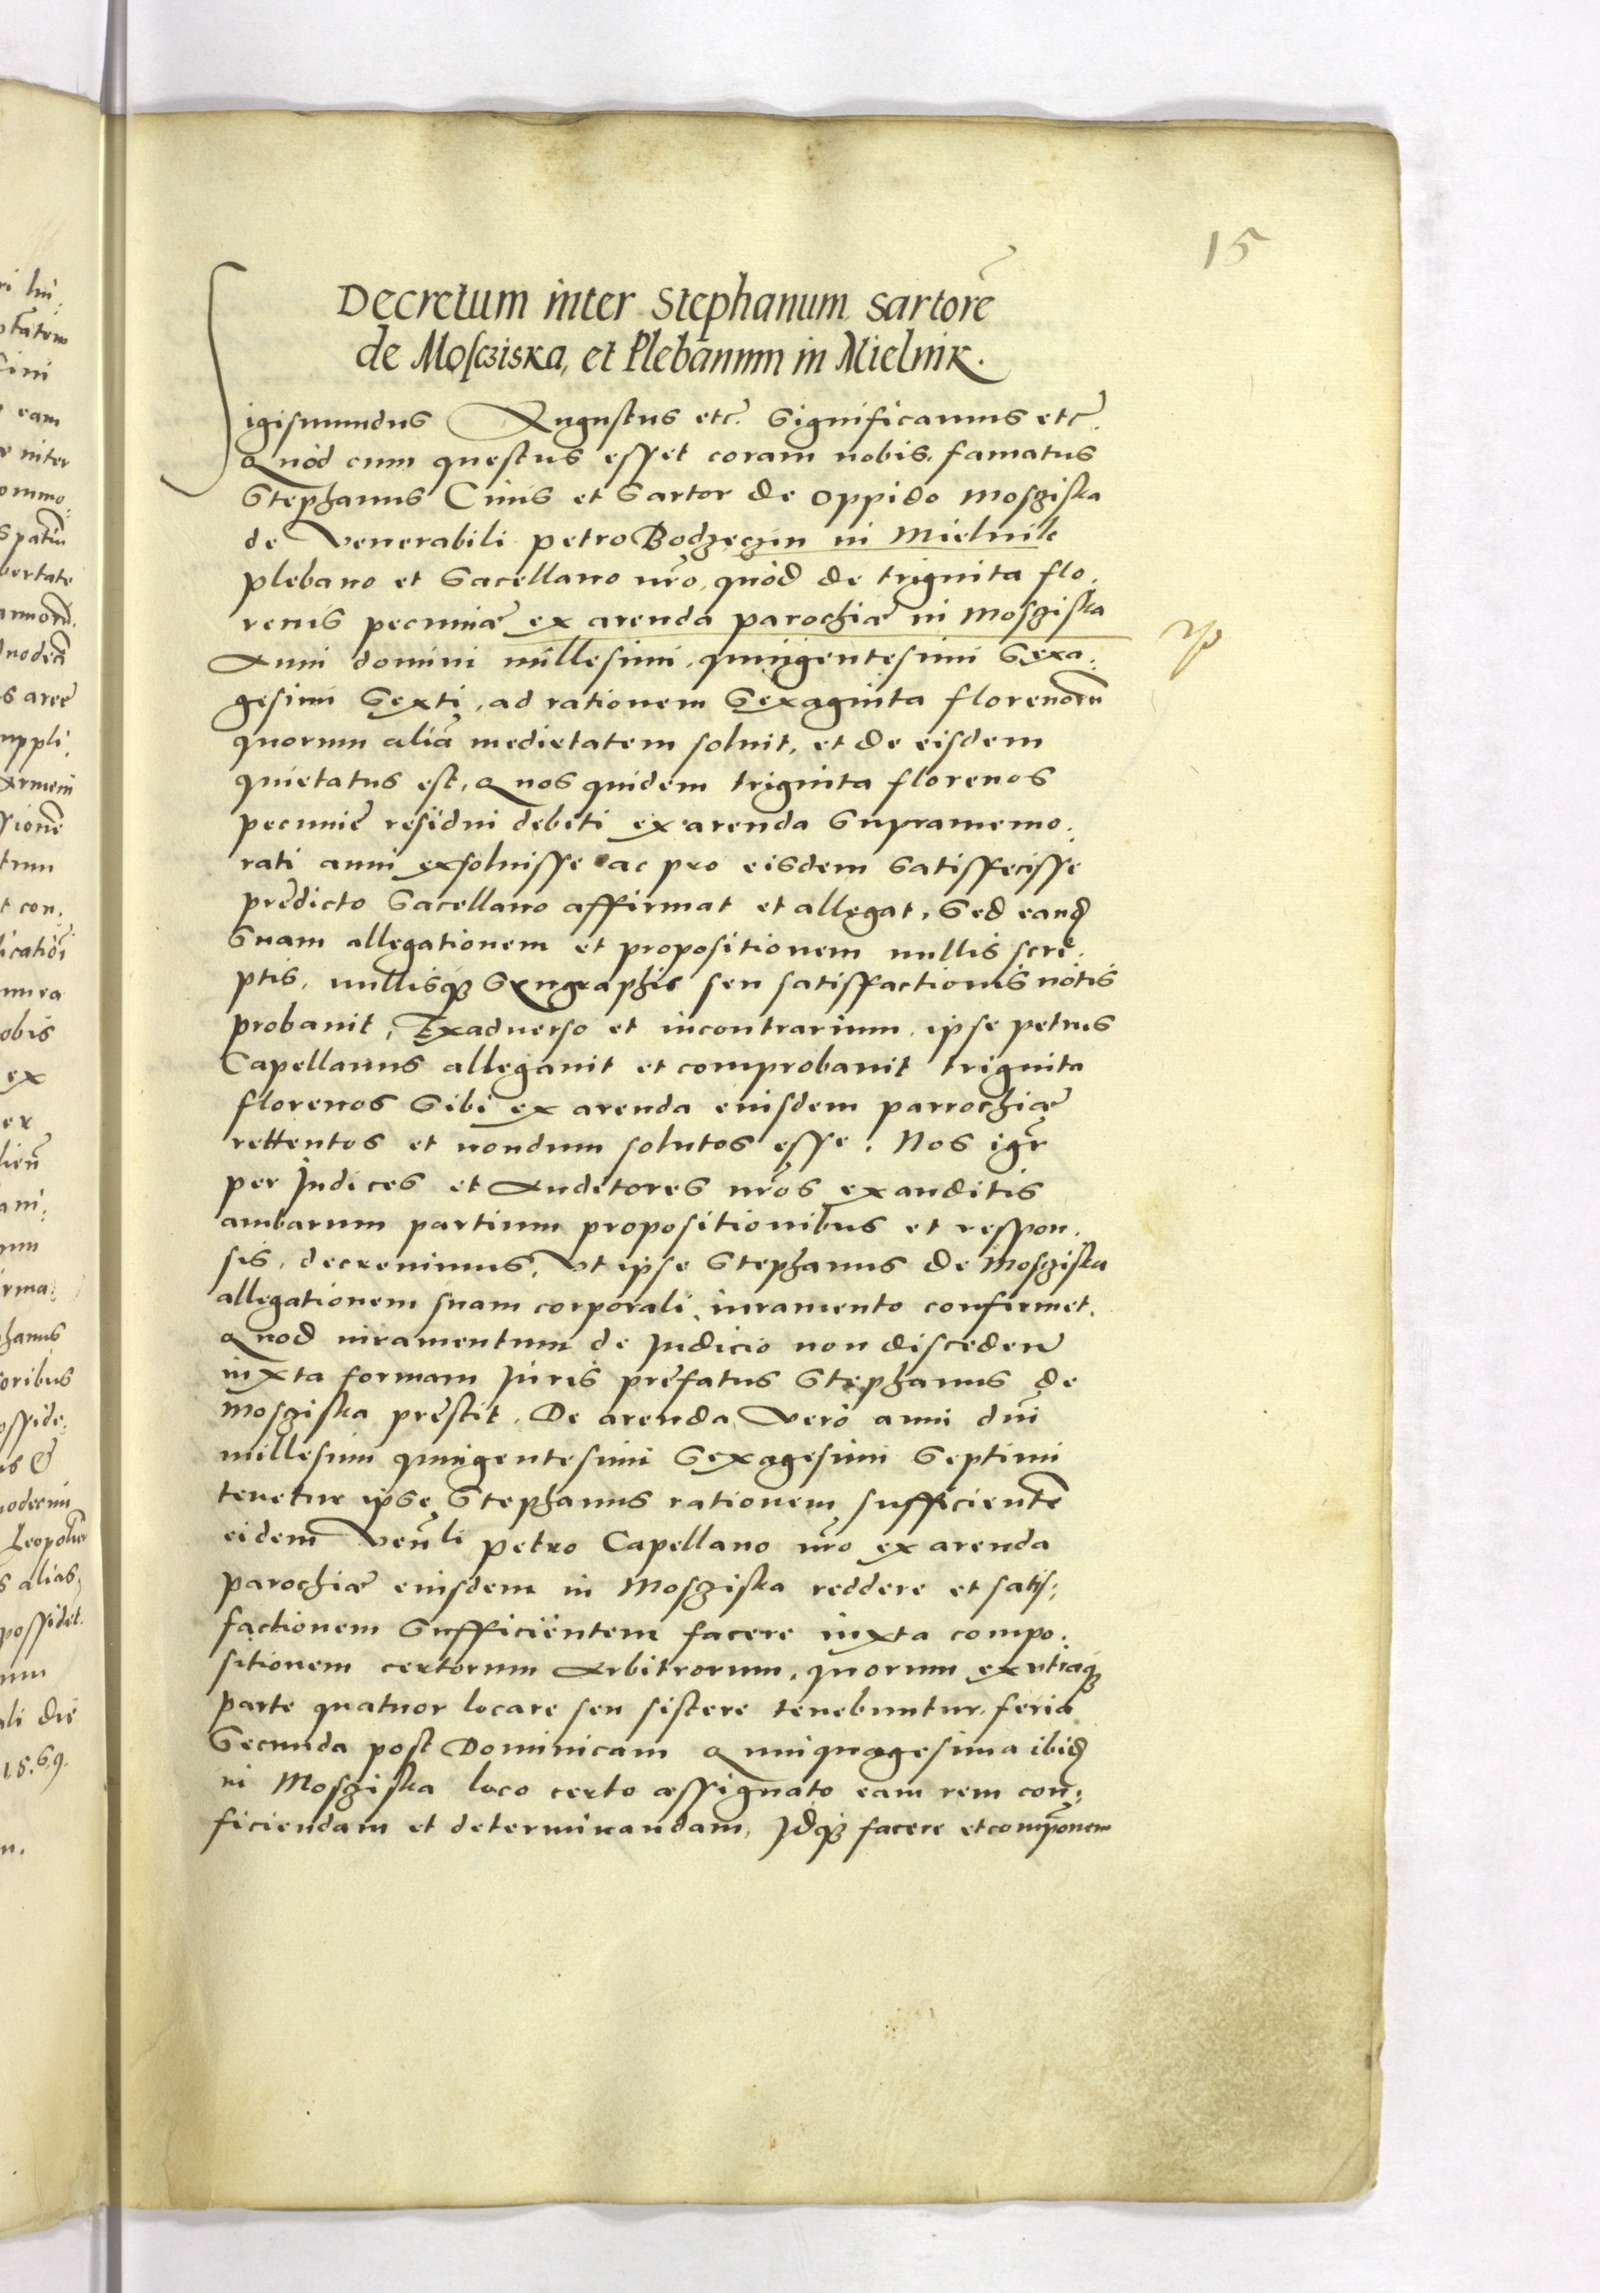 15
Decretum inter Stephanum Sartorē
de Mosciska, et Plebanum in Mielnik.
Sigismundus Augustus etc̄. Significamus etc̄.
Quod cum questus esset coram nobis, famatus
Stephanus Ciuis et Sartor de oppido Mosziska
de Venerabili petro Bodzeczin in Mielnik
plebano et Sacellano nr̄o, quòd de triginta flo:
renis pecuniæ ex arenda parochiæ in Mosziska
Anni domini millesimi, quingentesimi Sexa:
gesimi Sexti, ad rationem Sexaginta florenorū
quorum aliā medietatem soluit, et de eisdem
quietatus est, Quos quidem triginta florenos
pecuniē residui debiti ex arenda Supramemo:
rati anni exsoluisse ac pro eisdem Satisfecisse
prēdicto Sacellano affirmat et allegat, Sed eand
Suam allegationem et propositionem nullis scri:
ptis, nullisq Syngraphis seu satisfactionis notis
probauit, Exaduerso et incontrarium ipse petrus
Capellanus allegauit et comprobauit triginta
florenos Sibi ex arenda eiusdem parrochiæ
rettentos et nondum solutos esse. Nos igr̄
per Judices et Auditores nr̄os exauditis
ambarum partium propositionibus et respon:
sis, decreuimus, Vt ipse Stephanus de Mosziska
allegationem suam corporali iuramento confirmet.
Quod iuramentum de Judicio non discedens
iuxta formam Juris prēfatus Stephanus de
Mosziska prēstit, De arenda Verò anni dn̄i
millesimi quingentesimi Sexagesimi Septimi
tenetur ipse Stephanus rationem sufficientē
eidem Ven̄li petro Capellano nr̄o ex arenda
parochiæ eiusdem in Mosziska reddere et satis:
factionem Sufficientem facere iuxta compo:
sitionem certorum Arbitrorum, quorum ex vtraq
parte quatuor locare seu sistere tenebuntur feria
Secunda post Dominicam Quinquagesima ibid
in Mosziska loco certo assignato eam rem con:
ficiendam et determinandam, Jdq facere et componem